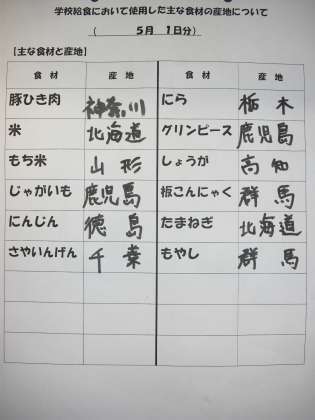 学校給食において使用した主な食材の産地について
( 5月 1日分)
【主な食材と産地】
食材 産地 食材 産地
豚ひき肉 神奈川 にら 栃木
米 北海道 グリンピース 鹿児島
もち米 山形 しょうが 高知
じゃがいも 鹿児島 板こんにゃく 群馬
にんじん 徳島 たまねぎ 北海道
さやいんげん 千葉 もやし 群馬